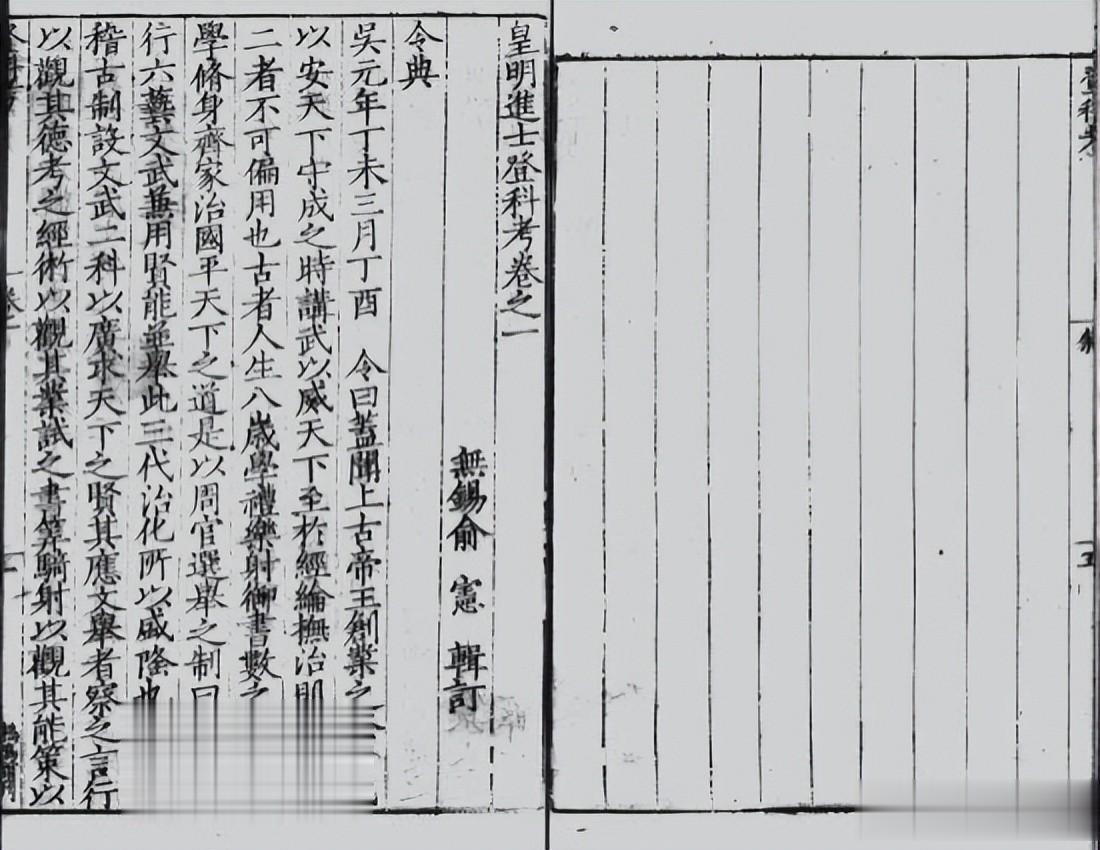 皇明進士登科考卷之一
無錫俞 憲 輯訂
令典
吳元年丁未三月丁酉 令曰蓋聞上古帝王創業之
以安天下守成之時講武以威天下至於經綸撫治則
二者不可偏用也古者人生八歲學禮樂射御書數之
學脩身齊家治國平天下之道是以周官選舉之制曰
行六藝文武兼用賢能並舉此三代治化所以盛隆也
稽古制設文武二科以廣求天下之賢其應文舉者察之言行
以觀其德考之經術以觀其業試之書算騎射以觀其能策以